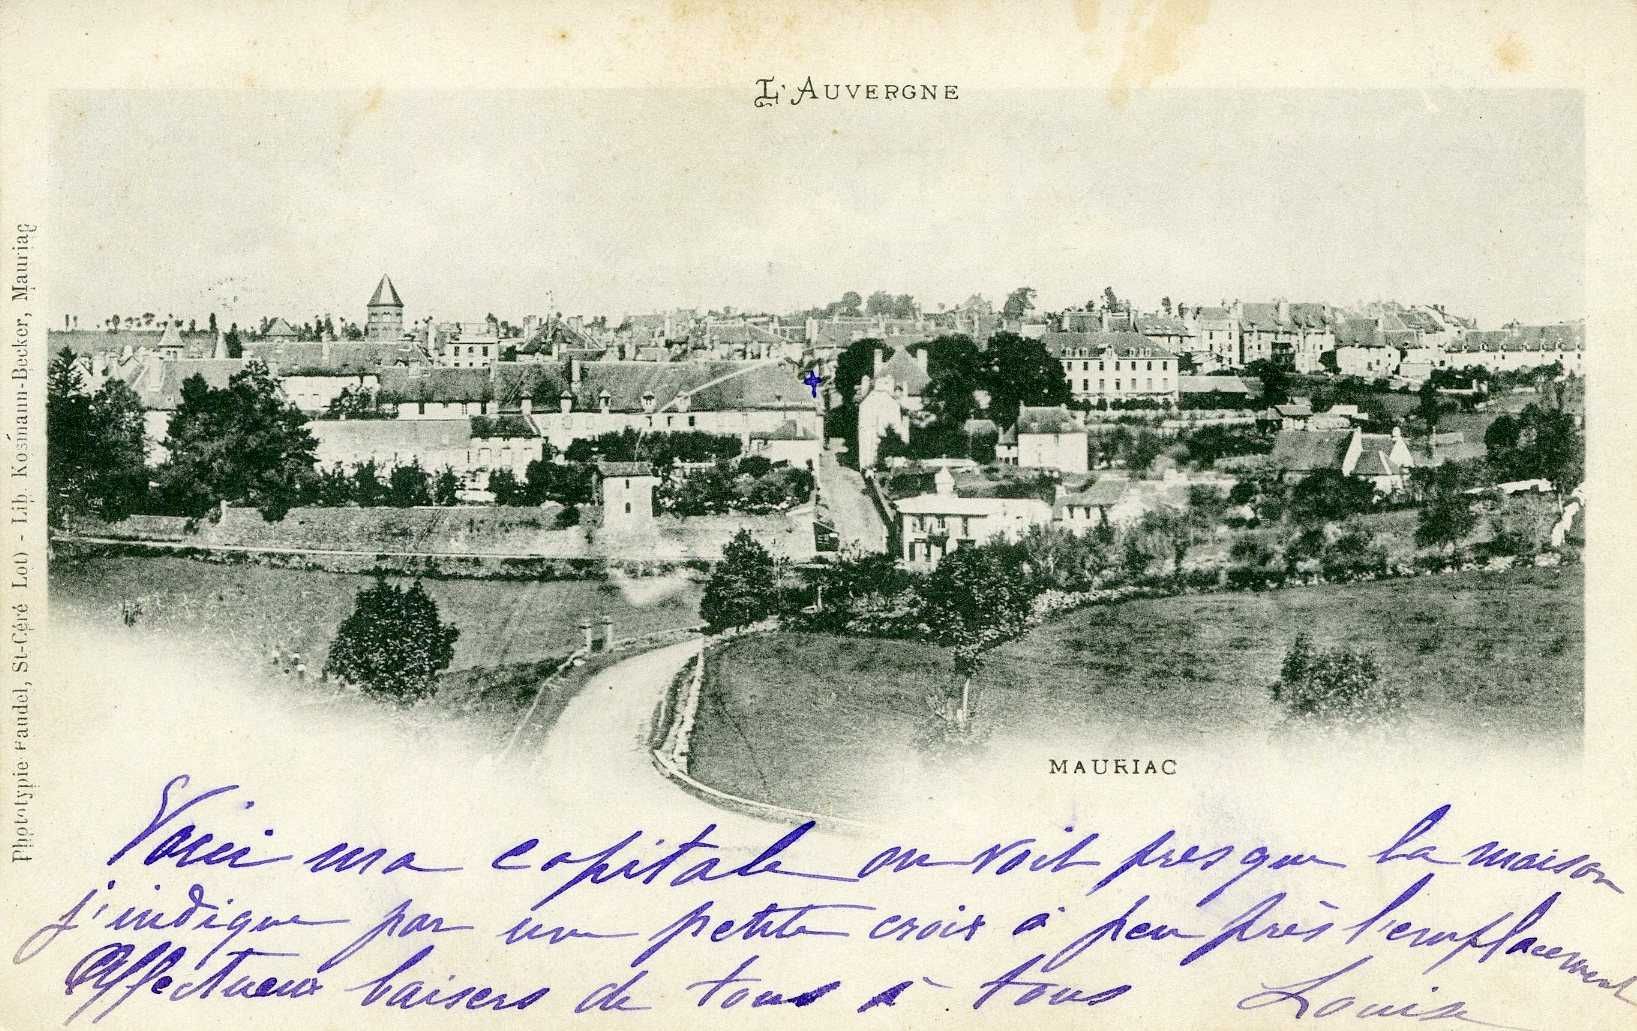 L'AUVERGNE
Phototypie Baudel, St-Céré Lot) - Lib. Kosmann-Becker, Mauriac
MAURIAC
Voici ma capitale on voit presque la maison
j'indique par une petite croix à peu près l'emplacement
Affectueux baisers de tous à tous Louise